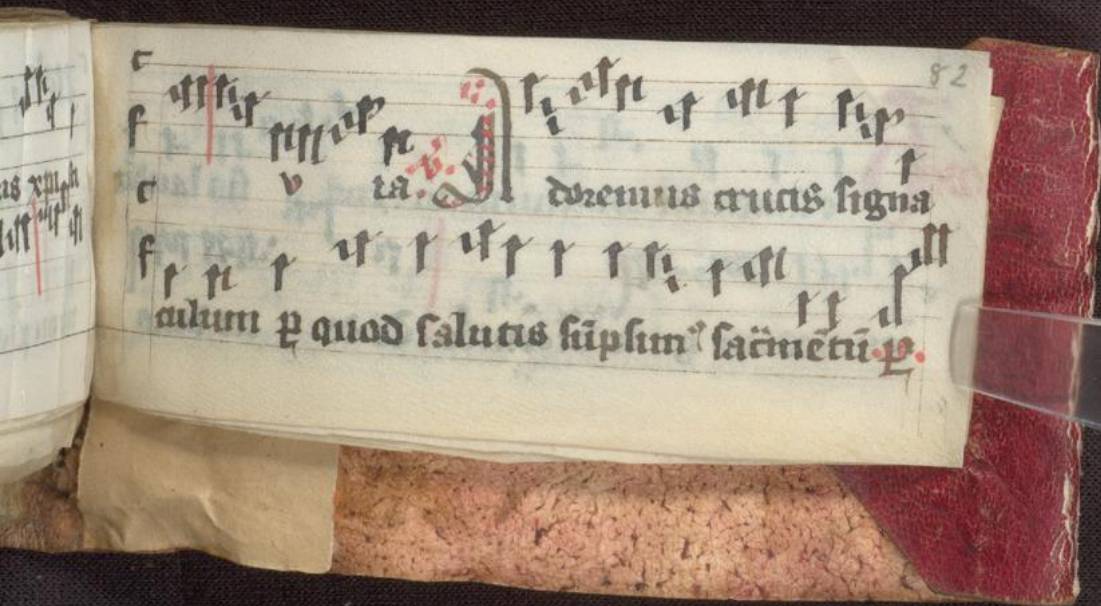 82
v ta .v. Adoremus crucis signa
culum ꝑ quod salutis sūpsimꝰ sac̄mētū. ꝑ.